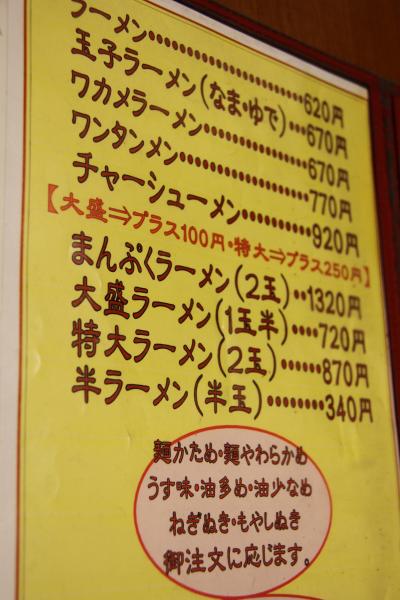 ラーメン…………………620円
玉子ラーメン(なま・ゆで)…670円
ワカメラーメン……………670円
ワンタンメン………………770円
チャーシューメン…………920円
【大盛⇒プラス100円・特大⇒プラス250円】
まんぷくラーメン(2玉)‥1320円
大盛ラーメン(1玉半)‥‥720円
特大ラーメン(2玉)……870円
半ラーメン(半玉)………340円
麺かため・麺やわらかめ
うす味・油多め・油少なめ
ねぎぬき・もやしぬき
御注文に応じます。